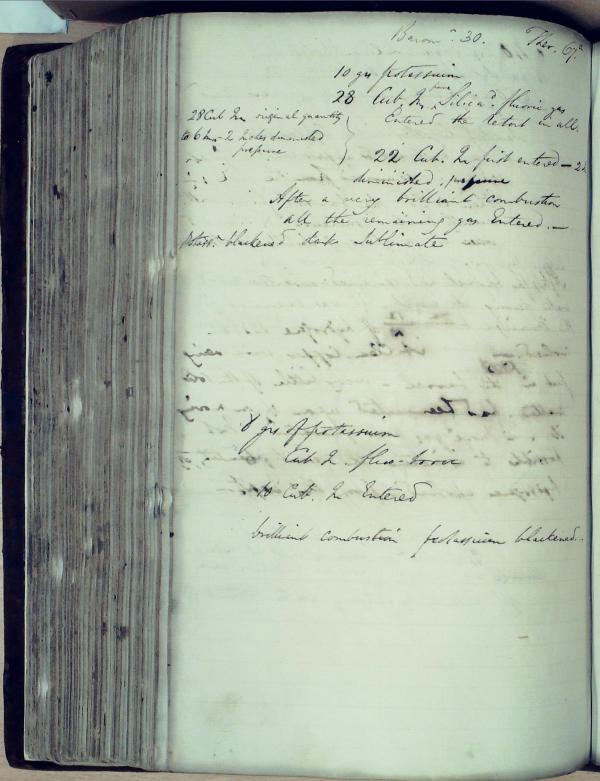 Barom.r 30. Ther. 67.
10 grs potassium
28 Cub. In. pure Silica.d fluoric gas
Entered the retort in all.
28 Cub In original quantity
to 6 2 Inches diminished
pressure
22 Cub. In first entered —
diminished pressure
After a very brilliant combustion
all the remaining gas Entered. —
Potass.m blackened dark Sublimate
8 grs of potassium
Cub In fluo-boric
10 Cub. In Entered
brilliant combustion potassium blackened.